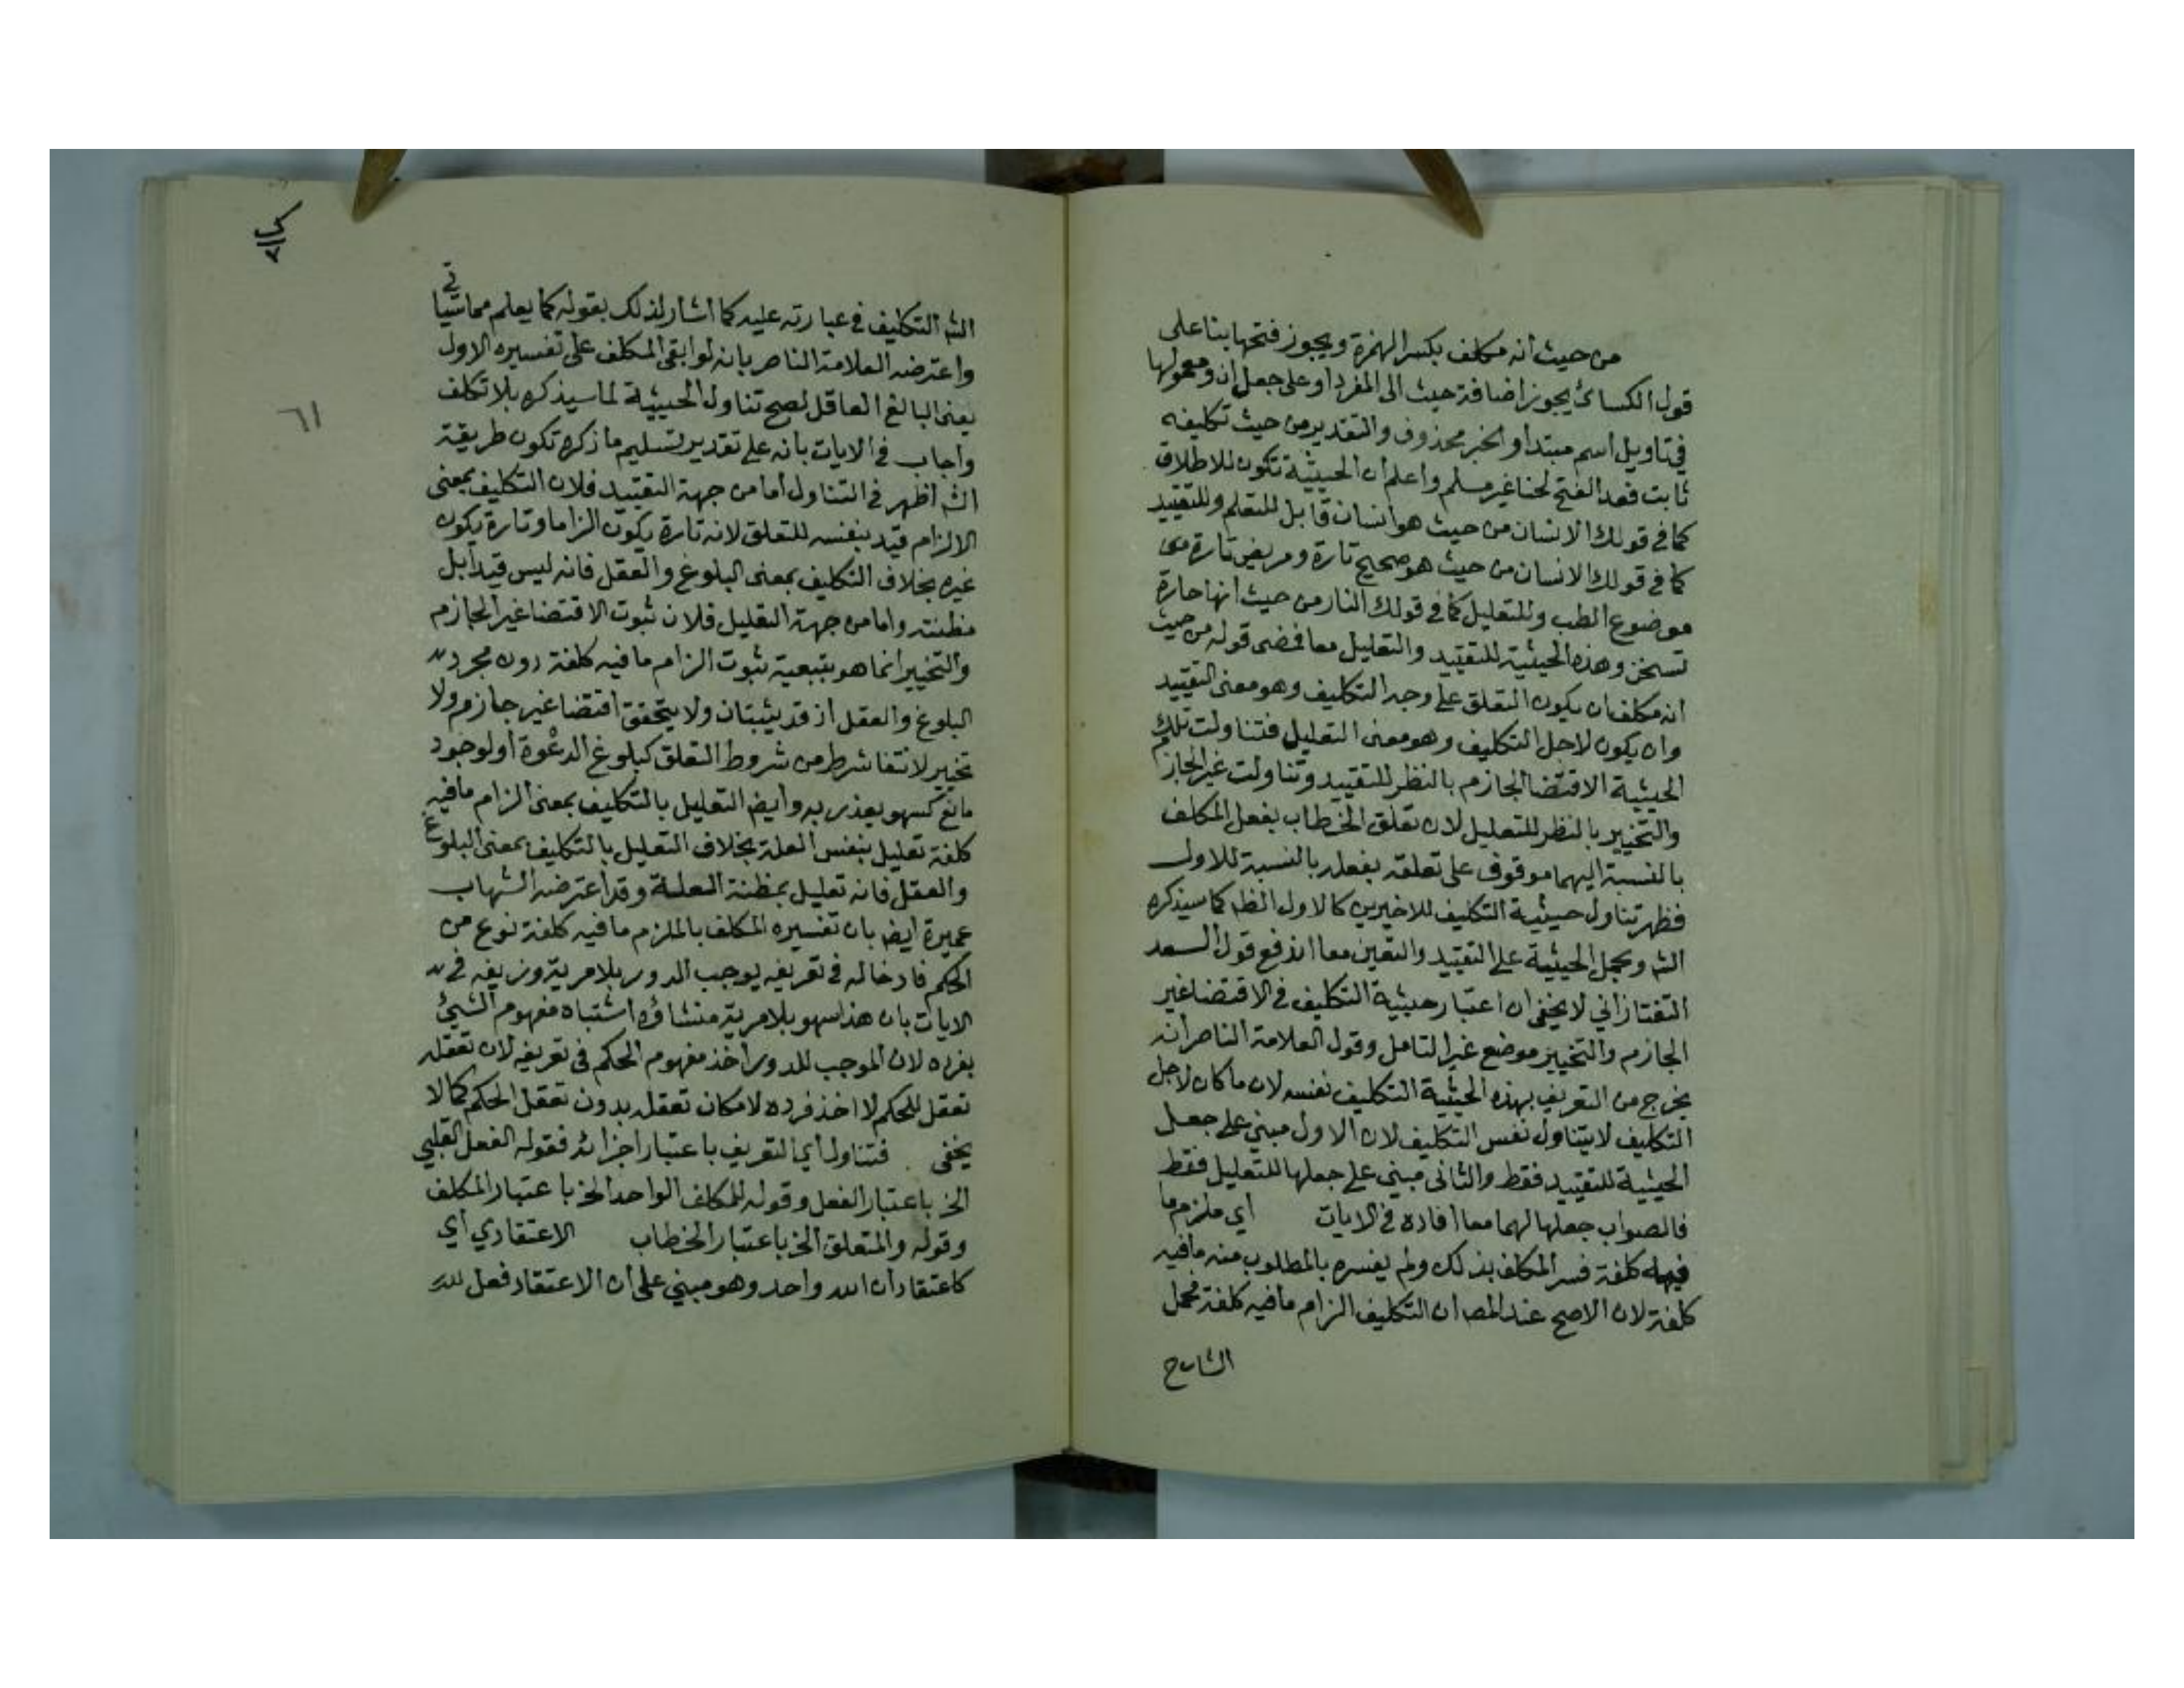 من حيث انه مكلف بكسر الهمزة ويجوز فتحها بنا على
قول الكسائ يجوز اضافة حيث الى المفرد او على جعل ان ومعمولها
في تاويل اسم مبتدا والخبر محذوف والتقدير من حيث تكليفه
ثابت فعد الفتح لحنا غير مسلم واعلم ان الحيثية تكون للاطلاق
كما في قولك الانسان من حيث هو انسان قابل للتعلم وللتقييد
كما في قولك الانسان من حيث هو صحيح تارة ومريض تارة من
موضوع الطب وللتعليل كما في قولك النار من حيث انها حارة
تسخن وهذه الحيثية للتقييد والتعليل معا فمضى قوله من حيث
انه مكلف ان يكون التعلق على وجه التكليف وهو معنى التقييد
وان يكون لاجل التكليف وهو معنى التعليل فتناولت تلك
الحيثية الاقتضا الجازم بالنظر للتقييد وتناولت غير الجازم
والتخيير بالنظر للتعليل لان تعلق الخطاب بفعل المكلف
بالنسبة اليهما موقوف على تعلقه بفعله بالنسبة للاول
فظهر تناول حيثية التكليف للاخيرين كالاول الظ كما سيذكره
الش وبحمل الحيثية على التقييد والتعين معا اندفع قول السعد
التفتازاني لا يخفى ان اعتبار حيثية التكليف في الاقتضا غير
الجازم والتخيير موضع غير التامل وقول العلامة الناصر انه
يخرج من التعريف بهذه الحيثية التكليف نفسه لان ما كان لاجل
التكليف لا يتناول نفس التكليف لان الاول مبني على جعل
الحيثية للتقييد فقط والثاني مبني على جعلها للتعليل فقط
فالصواب جعلها لهما معا افاده في الايات اي ملزم ما
فيه كلفة فسر المكلف بذلك ولم يفسره بالمطلوب منه ما فيه
كلفة لان الاصح عند المص ان التكليف الزام ما فيه كلفة محمل
الشارح
٦١
الش التكليف في عبارته عليه كما اشار لذلك بقوله كما يعلم مما سياتي
واعترضه العلامة الناصر بانه لو ابقى المكلف على تفسيره الاول
يعنى البالغ العاقل لصح تناول الحيثية لما سيذكره بلا تكلف
واجاب في الايات بانه على تقدير تسليم ما ذكره تكون طريقة
الش اظهر في التناول اما من جهة التقييد فلان التكليف بمعنى
الالزام قيد بنفسه للتعلق لانه تارة يكون الزاما وتارة يكون
غيره بخلاف التكليف بمعنى البلوغ والعقل فانه ليس قيدا بل
مظنته واما من جهة التعليل فلان ثبوت الاقتضا غير الجازم
والتخيير انما هو بتبعية ثبوت الزام ما فيه كلفة دون مجرد
البلوغ والعقل اذ قد يثبتان ولا يتحقق اقتضا غير جازم ولا
تخيير لانتفا شرط من شروط التعلق كبلوغ الدعوة او لوجود
مانع كسهو يعذر به وايض التعليل بالتكليف بمعنى الزام ما فيه
كلفة تعليل بنفس العلة بخلاف التعليل بالتكليف بمعنى البلوغ
والعقل فانه تعليل بمظنة العلة وقد اعترضه الشهاب
عميرة ايض بان تفسيره المكلف بالملزم ما فيه كلفة نوع من
الحكم فادخاله في تعريفه يوجب الدور بلا مرية وزيفه في
الايات بان هذا سهو بلا مرية منشاؤه اشتباه مفهوم الشيئ
بفرده لان الموجب للدور اخذ مفهوم الحكم في تعريفه لان تعقله
تعقل للحكم لا اخذ فرده لامكان تعقله بدون تعقل الحكم كما لا
يخفى فتناول اي التعريف باعتبار اجزائه فقوله الفعل القلبي
الخ باعتبار الفعل وقوله للمكلف الواحد الخ باعتبار المكلف
وقوله والمتعلق الخ باعتبار الخطاب الاعتقادي اي
كاعتقاد ان الله واحد وهو مبني على ان الاعتقاد فعل للـ